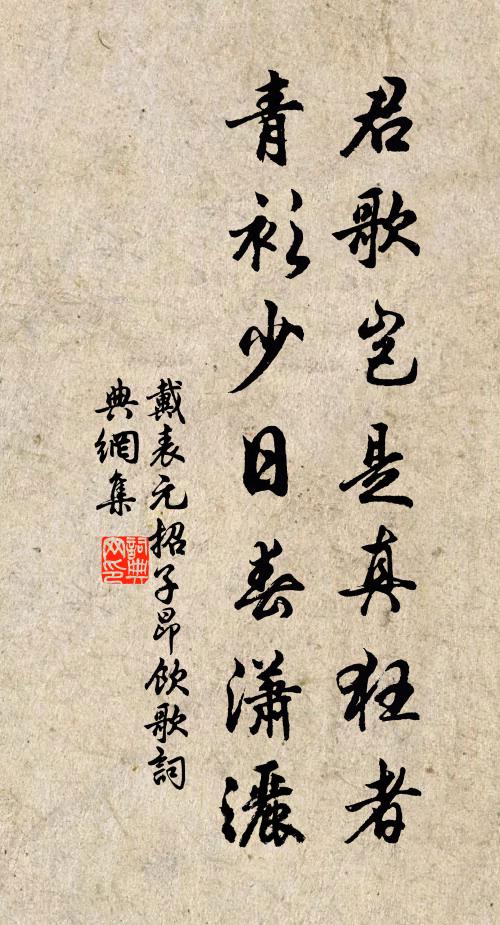 君歌岂是真狂者
青衫少日春瀟灑
戴表元招子昂飲歌詞
典網集
詞典
网印